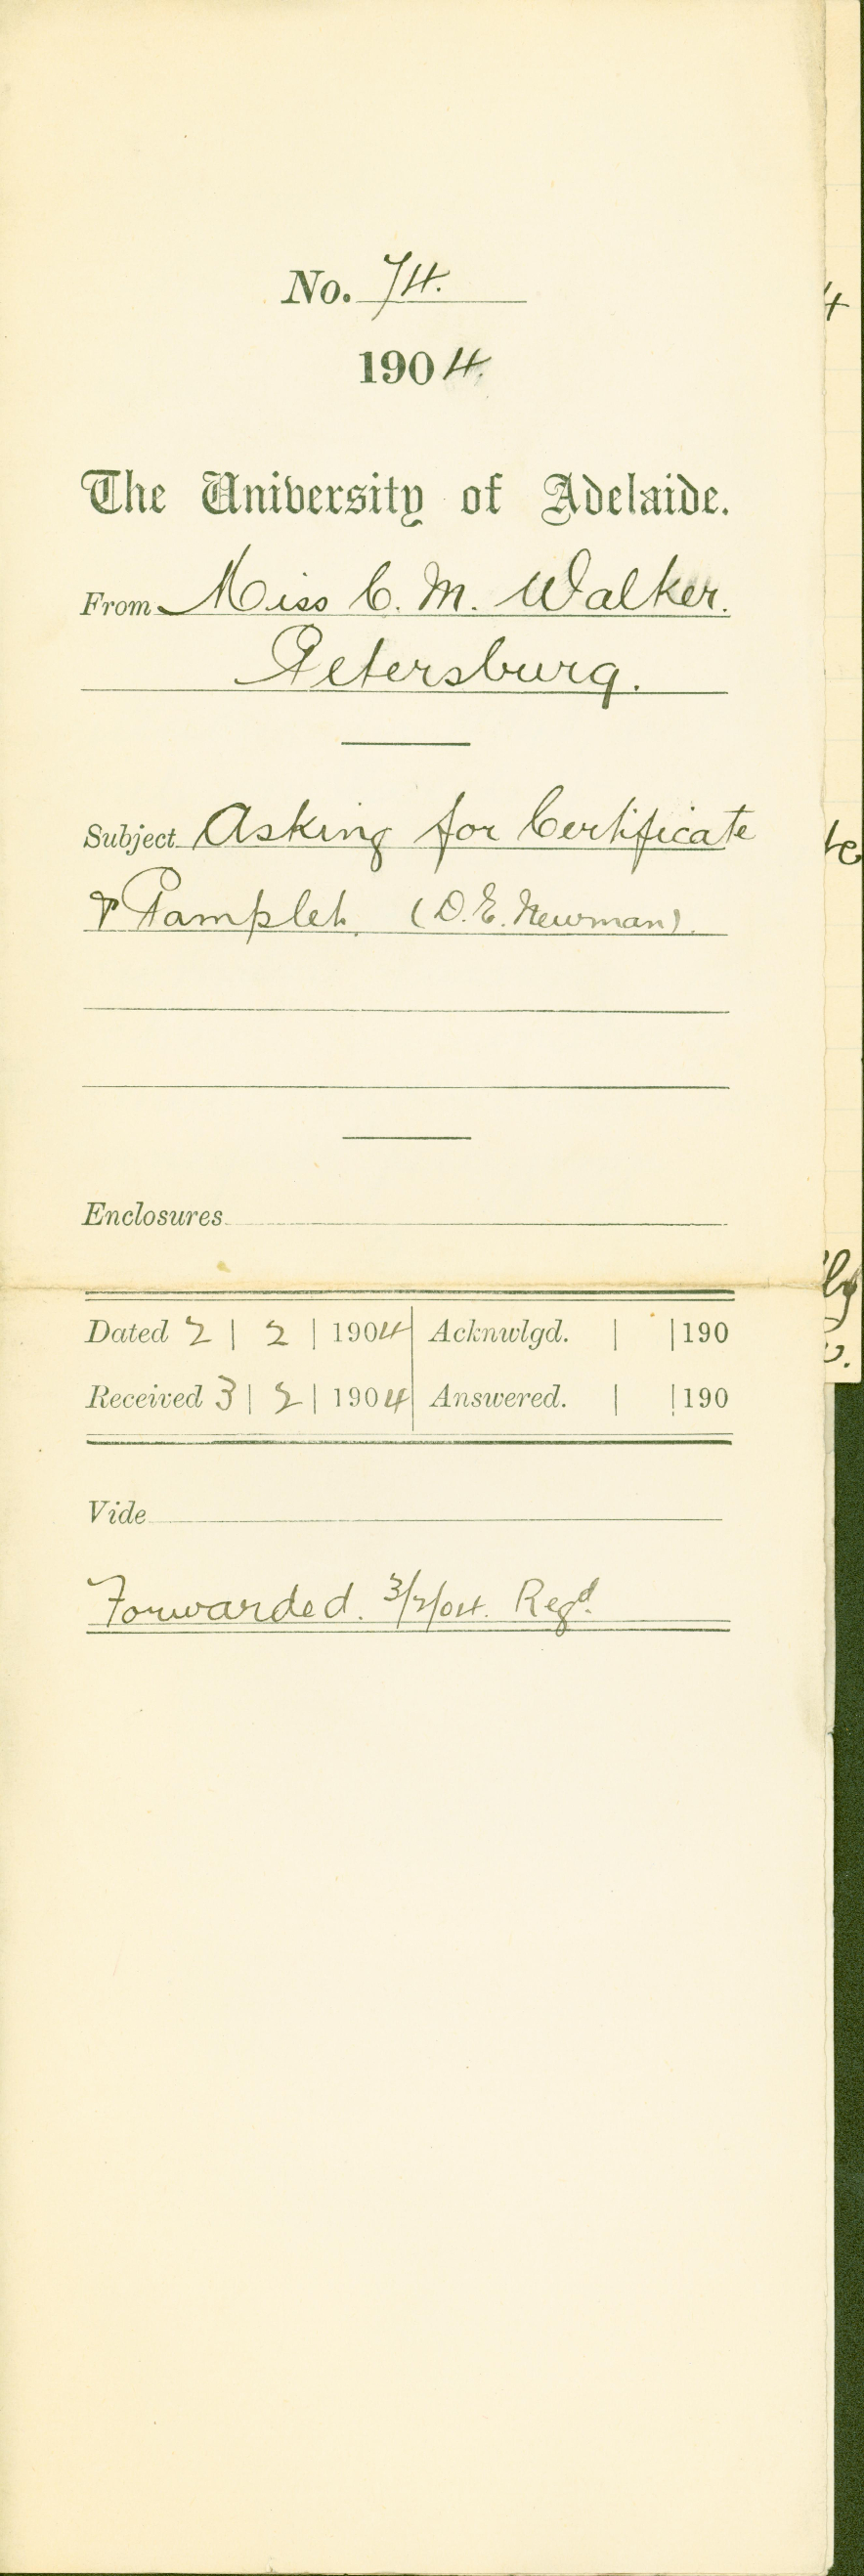 No. 74.
1904.
The University of Adelaide.
From Miss C. M. Walker.
Petersburg.
Subject Asking for Certificate
& Pamplet. (D. E. Newman).
Enclosures
Dated 2 | 2 | 1904 Acknwlgd. | | 190
Received 3 | 2 | 1904 Answered. | | 190
Vide
Forwarded. 3/2/04. Regd.